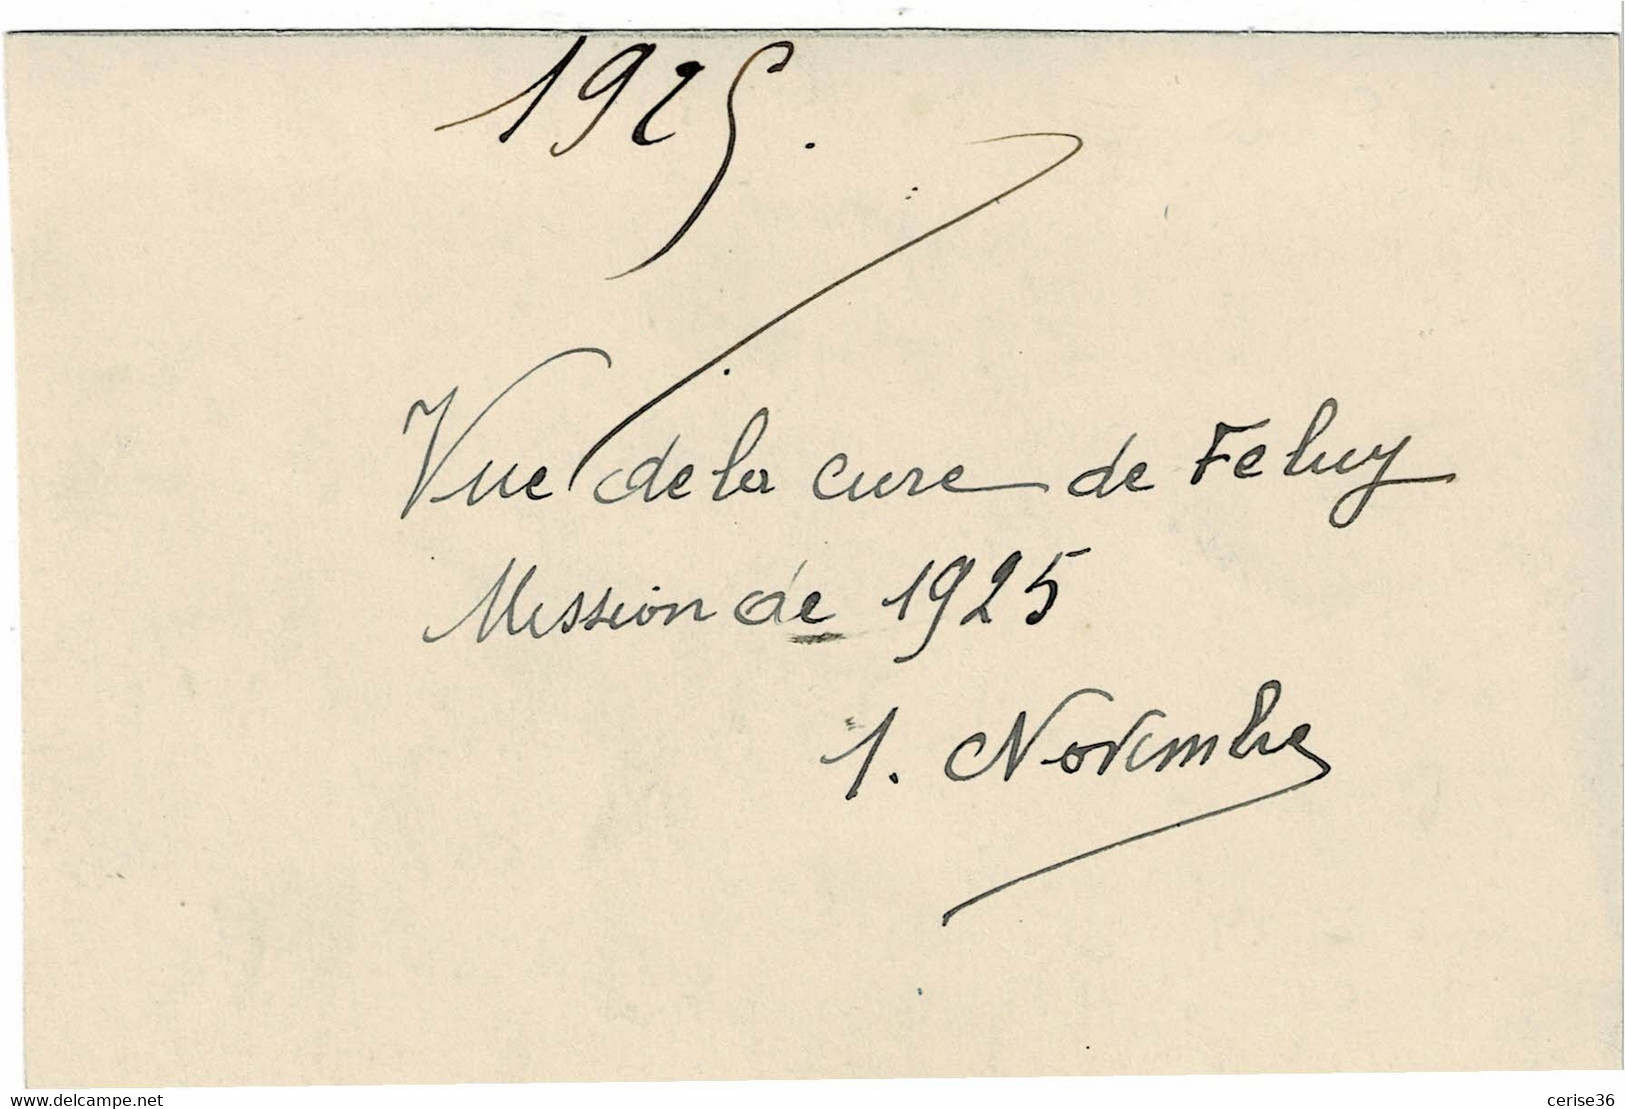 1925.
Vue de la cure de Feluy
Mission de 1925
1. Novembre
www.delcampe.net
cerise36